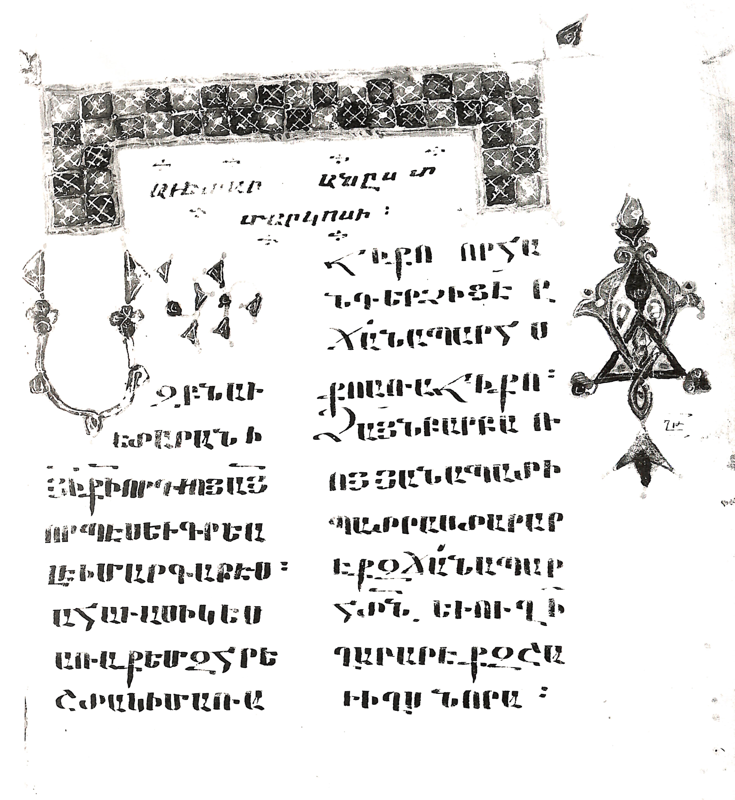 ԱՒԵՏԱՐ ԱՆԸՍ Տ
ՄԱՐԿՈՍԻ ։
ԶԲՆԱՒ
ԵՏԱՐԱՆ Ի
ՅԻՔԻՈՐԴՒՈՅԱՅ
ՈՐՊԷՍԵՒԳՐԵԱ
ԼԷԻՄԱՐԳԱՐԷՍ։
ԱՀԱՒԱՍԻԿ ԵՍ
ԱՌԱՔԵՄԶՀՐԵ
ՇՏԱԿԻՄԱՌԱ
ՋԻՔՈ ՈՐՀԱ
ՆԴԵՐՁԻՑԷ Զ
ՃԱՆԱՊԱՐՀ Ս
ՔՈԱՌԱՋԻՔՈ։
ՁԱՅՆԲԱՐԲԱ Ռ
ՈՅՅԱՆԱՊԱՏԻ
ՊԱՏՐԱՍՏԱՐԱՐ
ԵՔԶՃԱՆԱՊԱՐ
ՀՏՆ. ԵՒՈՒՂԻ
ՂԱՐԱՐԷՔԶՇԱ
ՒԻՂՍ ՆՈՐԱ ։